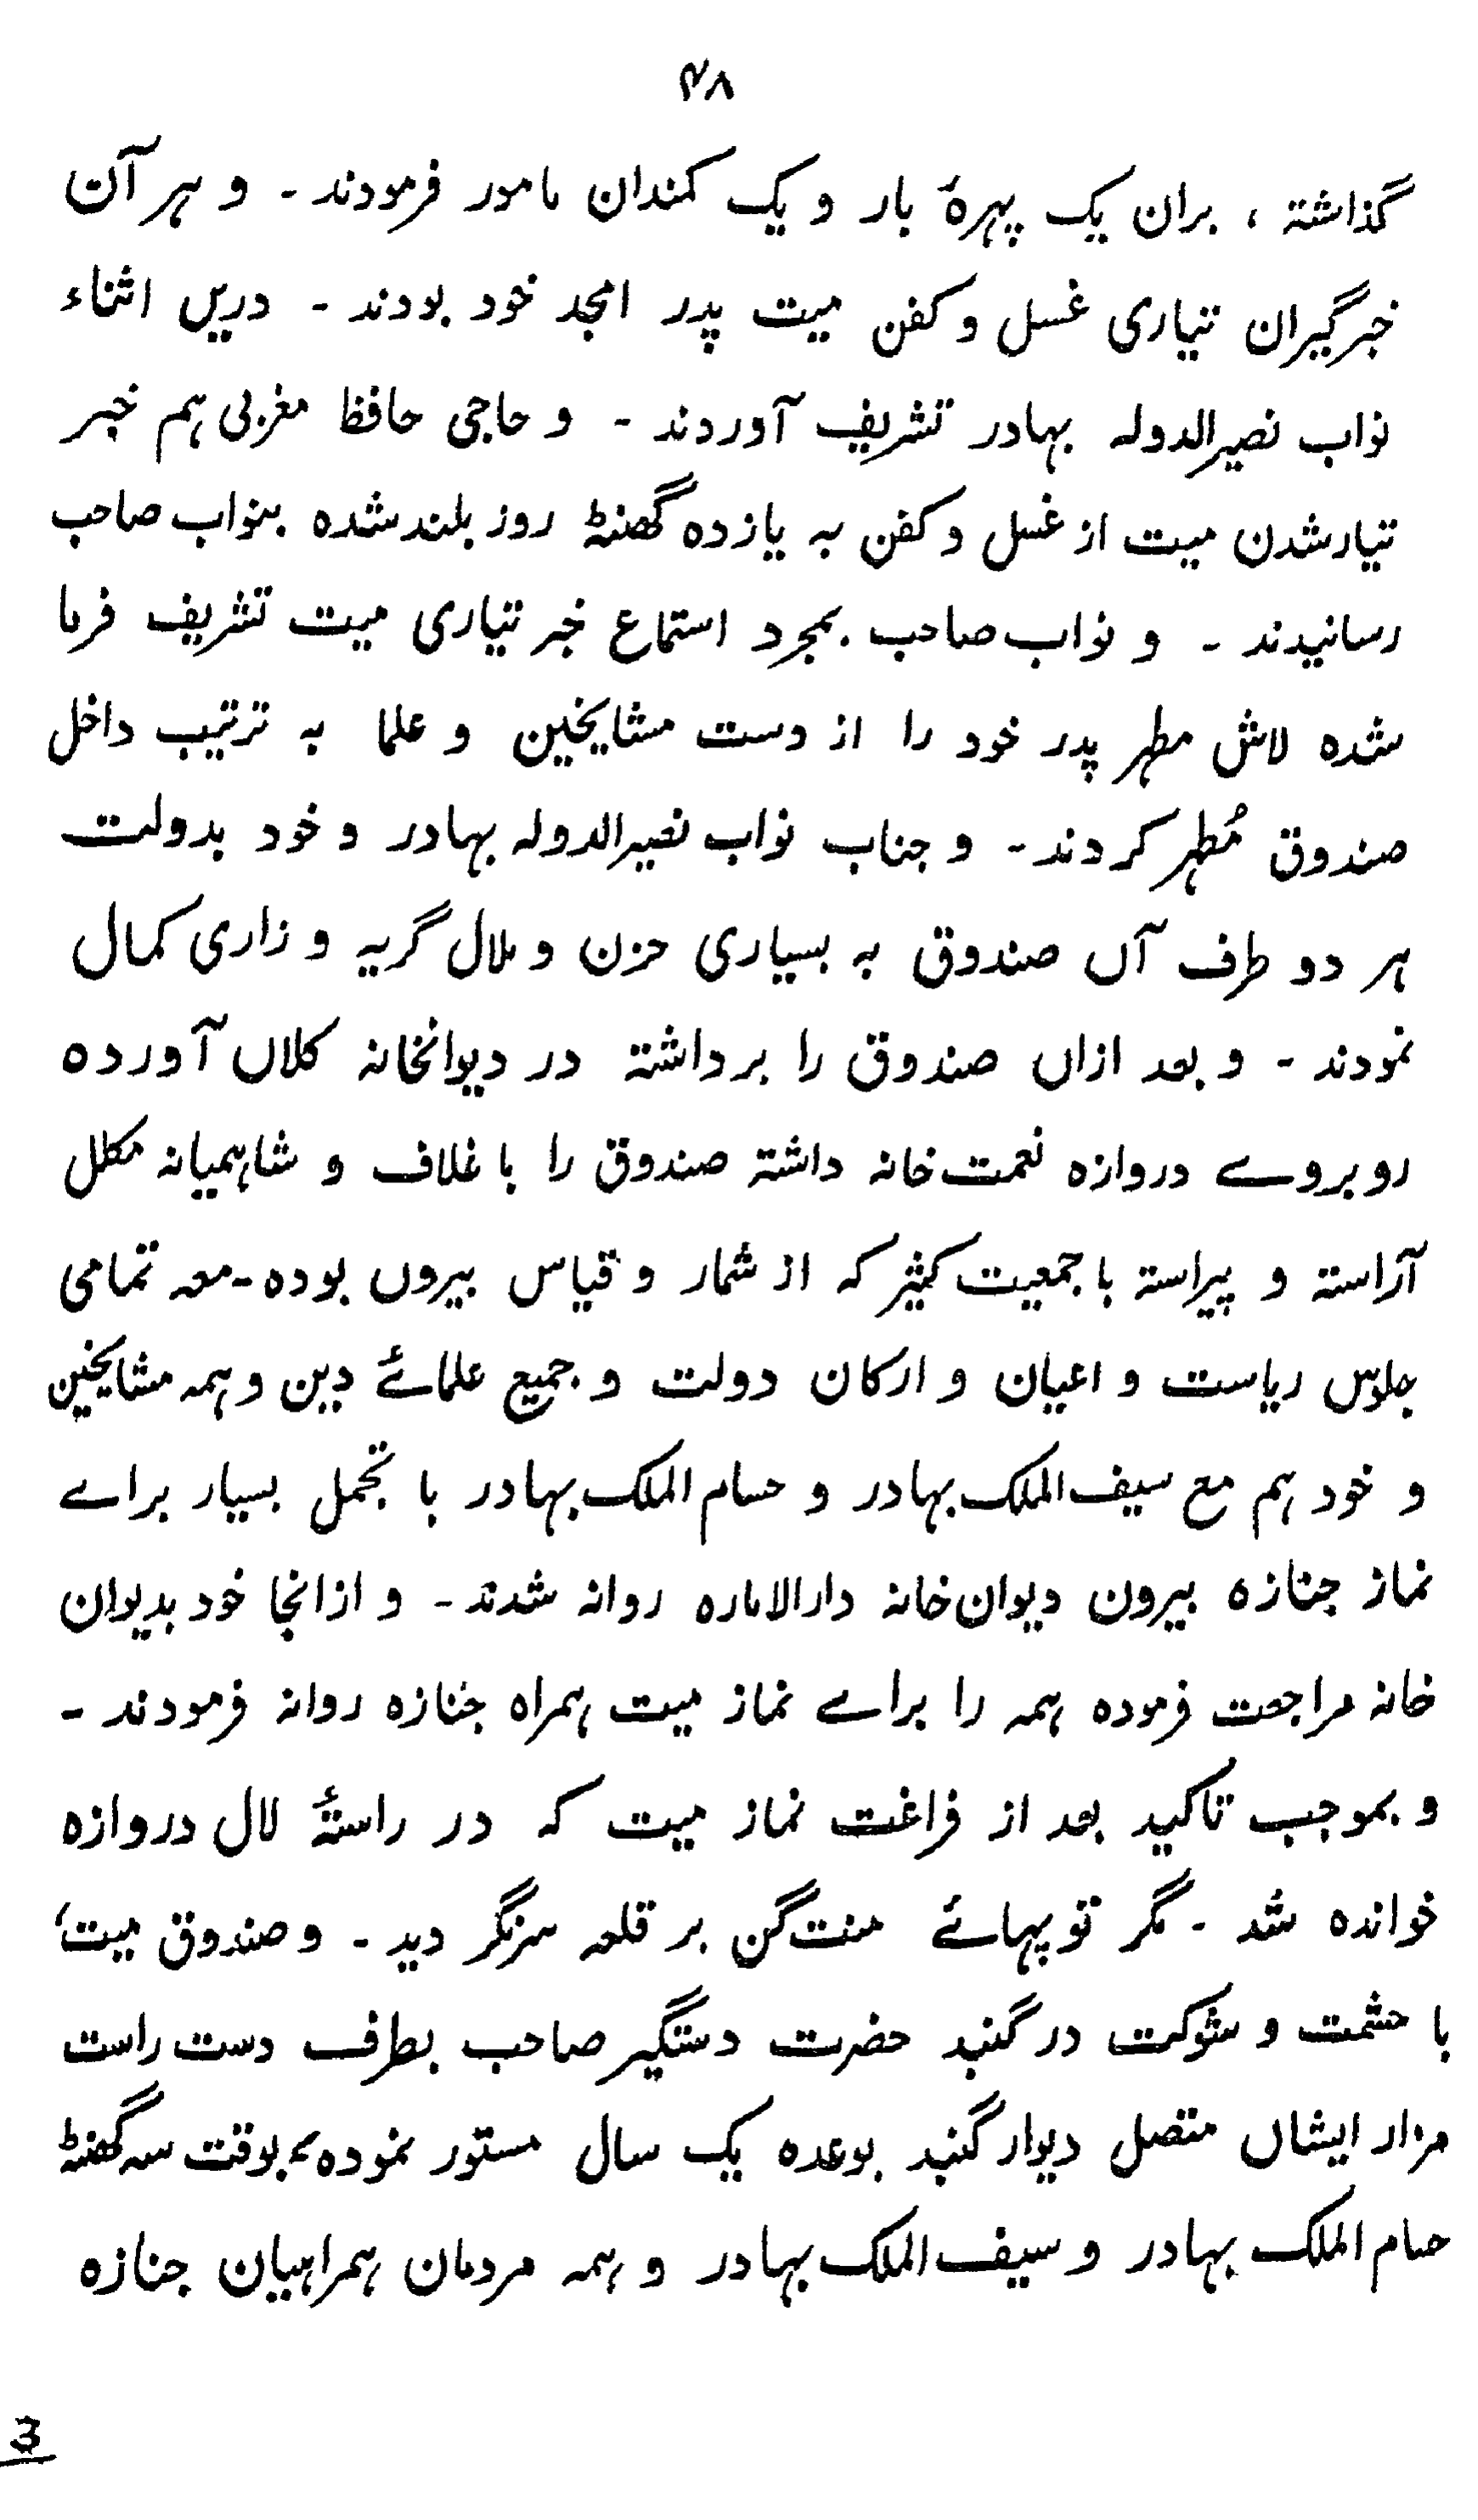 ۴۸
گذاشتہ ، بران یک پہرۂ بار و یک کمندان مامور فرمودند ۔ و ہر آن
خبرگیران تیاری غسل و کفن میت پدر امجد خود بودند ۔ دریں اثناء
نواب نصیرالدولہ بہادر تشریف آوردند ۔ و حاجی حافظ مغربی ہم خبر
تیار شدن میت از غسل و کفن بہ یازدہ گھنٹہ روز بلند شدہ بنواب صاحب
رسانیدند ۔ و نواب صاحب بمجرد استماع خبر تیاری میت تشریف فرما
شدہ لاش مطہر پدر خود را از دست مشایخین و علما بہ ترتیب داخل
صندوق مُطہر کردند ۔ و جناب نواب نصیرالدولہ بہادر و خود بدولت
ہر دو طرف آں صندوق بہ بسیاری حزن و ملال گریہ و زاری کمال
نمودند ۔ و بعد ازاں صندوق را برداشتہ در دیوانخانہ کلاں آوردہ
روبروے دروازہ نعمت خانہ داشتہ صندوق را با غلاف و شاہمیانہ مکلل
آراستہ و پیراستہ با جمعیت کثیر کہ از شمار و قیاس بیروں بودہ ۔ معہ تمامی
جلوس ریاست و اعیان و ارکان دولت و جمیع علمائے دین و ہمہ مشایخین
و خود ہم مع سیف الملک بہادر و حسام الملک بہادر با تجمل بسیار براے
نماز جنازہ بیرون دیوان خانہ دارالامارہ روانہ شدند ۔ و ازانجا خود بدیوان
خانہ مراجعت فرمودہ ہمہ را براے نماز میت ہمراہ جنازہ روانہ فرمودند ۔
و بموجب تاکید بعد از فراغت نماز میت کہ در راستۂ لال دروازہ
خواندہ شد ۔ مگر توپہائے منت گن بر قلعہ سرنگر دید ۔ و صندوق میت،
با حشمت و شوکت در گنبد حضرت دستگیر صاحب بطرف دست راست
مزار ایشاں متصل دیوار گنبد بوعدہ یک سال مستور نمودہ بوقت سہ گھنٹہ
حسام الملک بہادر و سیف الملک بہادر و ہمہ مردمان ہمراہیان جنازہ
3